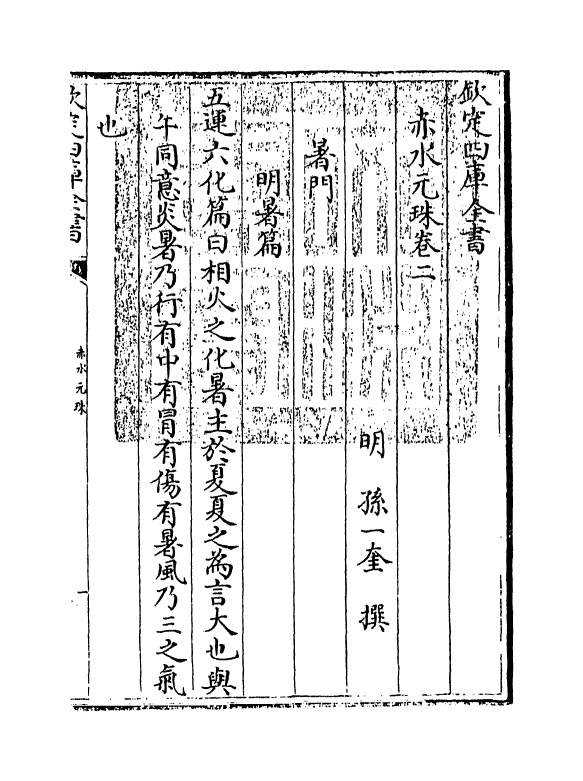 欽定四庫全書
赤水元珠卷二
明 孫一奎 撰
暑門
明暑篇
五運六化篇曰相火之化暑主於夏夏之為言大也與
午同意炎暑乃行有中有冒有傷有暑風乃三之氣
也
欽定四庫全書
赤水元珠
一